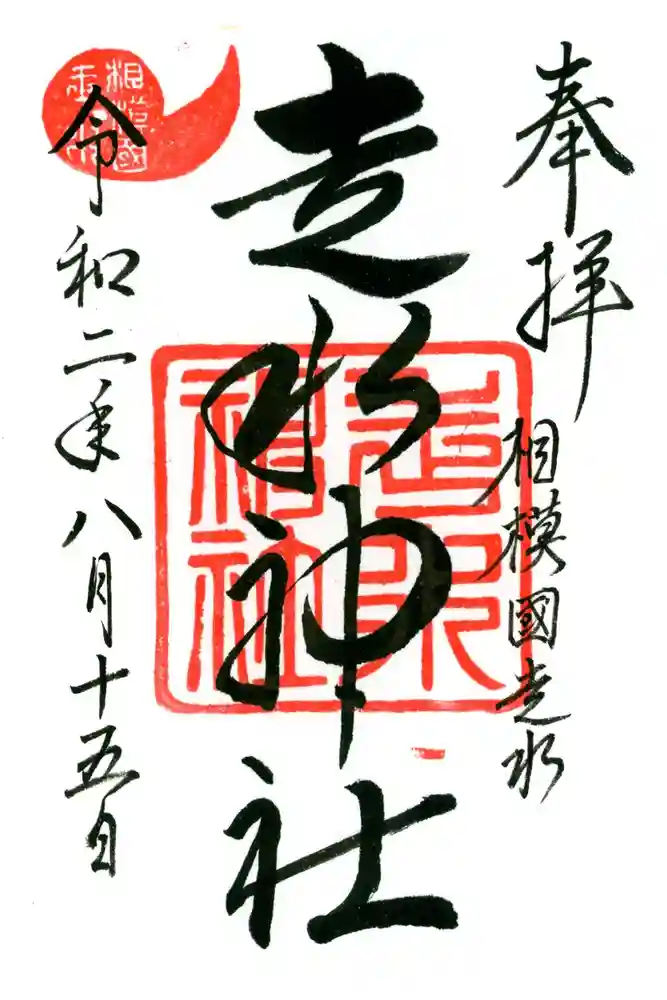 奉拝
相模國走水
走水神社
走水
神社
令和二年八月十五日
相模國
走水